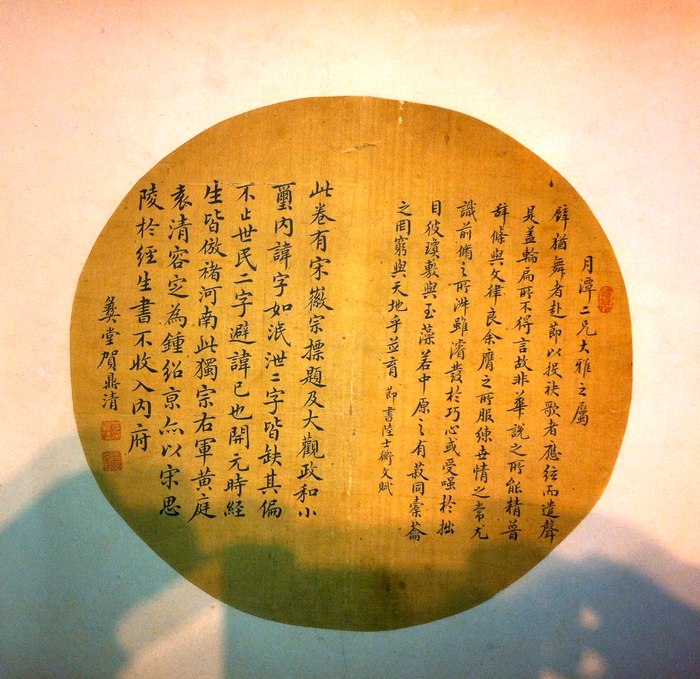 月潭二兄大雅之屬
譬猶舞者赴節以投袂歌者應絃而遣聲
是盖輪扁所不得言故非華說之所能精普
辭條與文律良余膺之所服練世情之常尤
識前脩之所淑雖濬發於巧心或受嗤於拙
目彼瓊敷與玉藻若中原之有菽同橐籥
之罔窮與天地乎並育 節書陸士衡文賦
此卷有宋徽宗標題及大觀政和小
璽內諱字如泯泄二字皆缺其偏
不止世民二字避諱已也開元時經
生皆倣褚河南此獨宗右軍黃庭
袁清容定為鍾紹京亦以宋思
陵於經生書不收入內府
彝堂賀鼎清